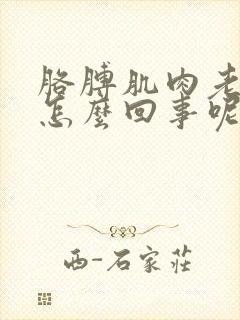 胳膊肌肉老
怎麼回事呢
西-石家莊